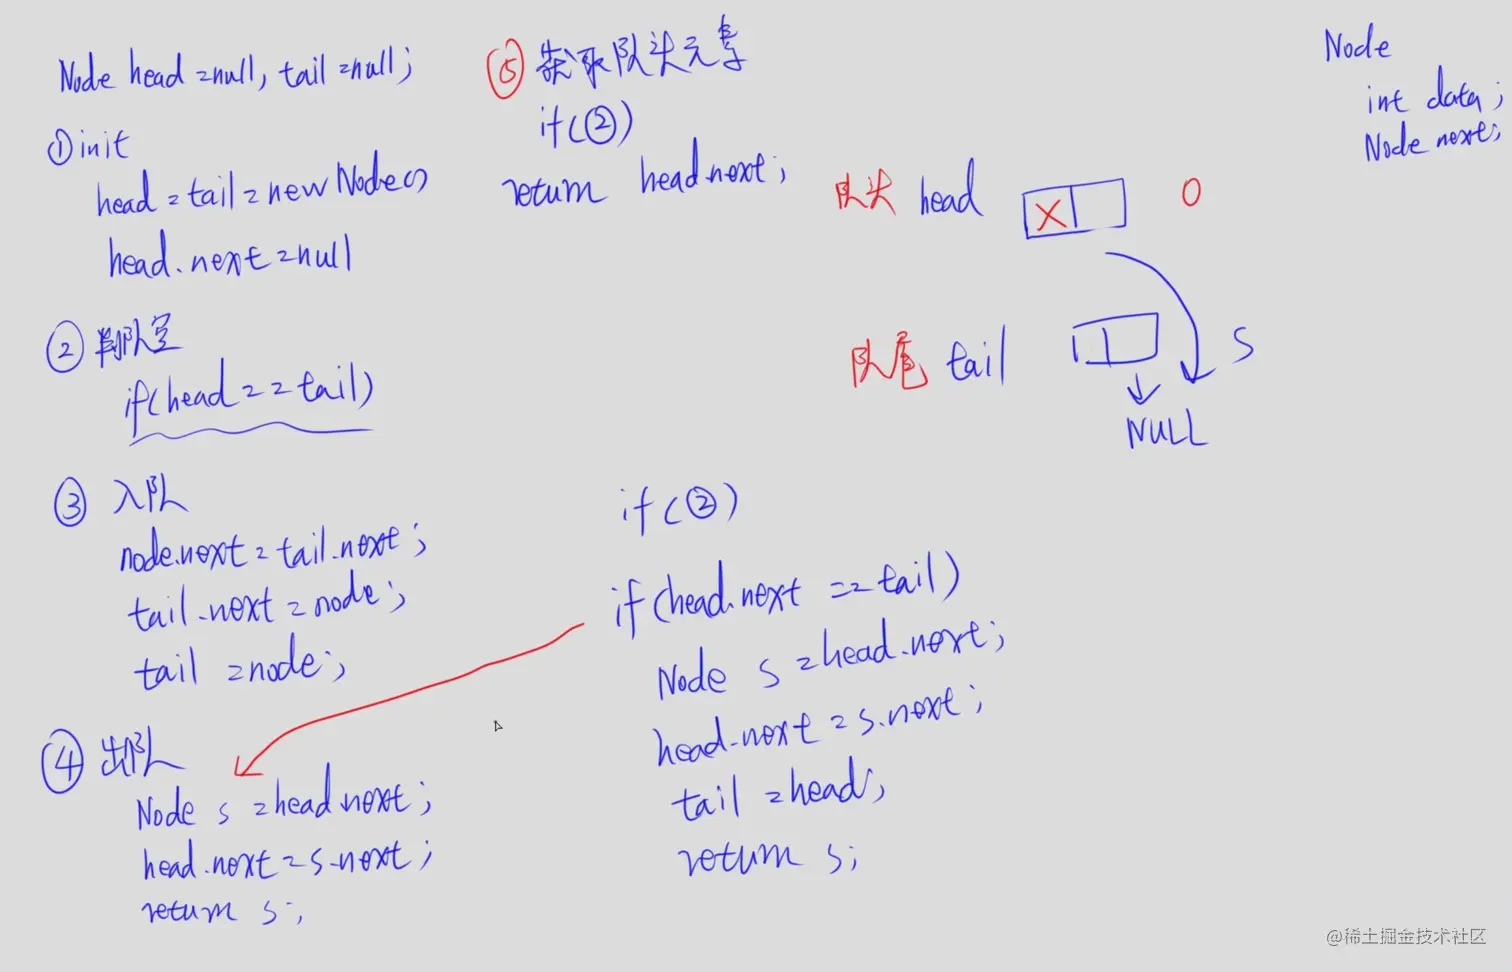 Node head=null, tail=null;
①init
head=tail=new Node()
head.next=null
②判队空
if(head==tail)
③入队
node.next=tail.next;
tail.next=node;
tail=node;
④出队
Node s=head.next;
head.next=s.next;
return s;
if(②)
if(head.next==tail)
Node s=head.next;
head.next=s.next;
tail=head;
return s;
⑤获取队头元素
if(②)
return head.next;
Node
int data;
Node next;
队头 head X O
队尾 tail S
NULL
@稀土掘金技术社区